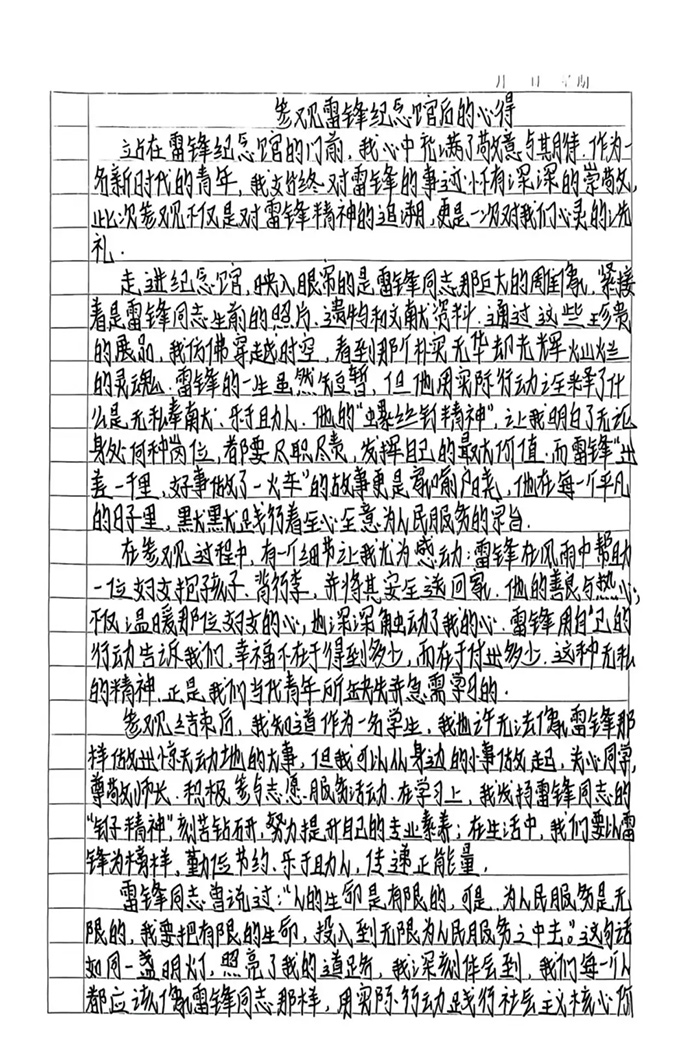 月 日 星期
参观雷锋纪念馆后的心得
站在雷锋纪念馆的门前，我心中充满了敬意与期待.作为一
名新时代的青年，我始终对雷锋的事迹怀有深深的崇敬，
此次参观不仅是对雷锋精神的追溯，更是一次对我们心灵的洗
礼.
走进纪念馆，映入眼帘的是雷锋同志那巨大的雕像，紧接
着是雷锋同志生前的照片、遗物和文献资料.通过这些珍贵
的展品，我仿佛穿越时空，看到那个朴实无华却光辉灿烂
的灵魂.雷锋的一生虽然短暂，但他用实际行动诠释了什
么是无私奉献、乐于助人.他的“螺丝钉精神”，让我明白了无论
身处何种岗位，都要尽职尽责，发挥自己的最大价值.而雷锋“出
差一千里，好事做了一火车”的故事更是家喻户晓，他在每一个平凡
的日子里，默默践行着全心全意为人民服务的宗旨.
在参观过程中，有一个细节让我尤为感动：雷锋在风雨中帮助
一位妇女抱孩子、背行李，并将其安全送回家.他的善良与热心，
不仅温暖那位妇女的心，也深深触动了我的心.雷锋用自己的
行动告诉我们，幸福不在于得到多少，而在于付出多少.这种无私
的精神，正是我们当代青年所缺失并急需学习的.
参观结束后，我知道作为一名学生，我也许无法像雷锋那
样做出惊天动地的大事，但我可以从身边的小事做起，关心同学，
尊敬师长.积极参与志愿服务活动.在学习上，我发扬雷锋同志的
“钉子精神”，刻苦钻研，努力提升自己的专业素养；在生活中，我们要以雷
锋为榜样，勤俭节约、乐于助人，传递正能量.
雷锋同志曾说过：“人的生命是有限的，可是，为人民服务是无
限的，我要把有限的生命，投入到无限为人民服务之中去。”这句话
如同一盏明灯，照亮了我的道路，我深刻体会到，我们每一个人
都应该像雷锋同志那样，用实际行动践行社会主义核心价